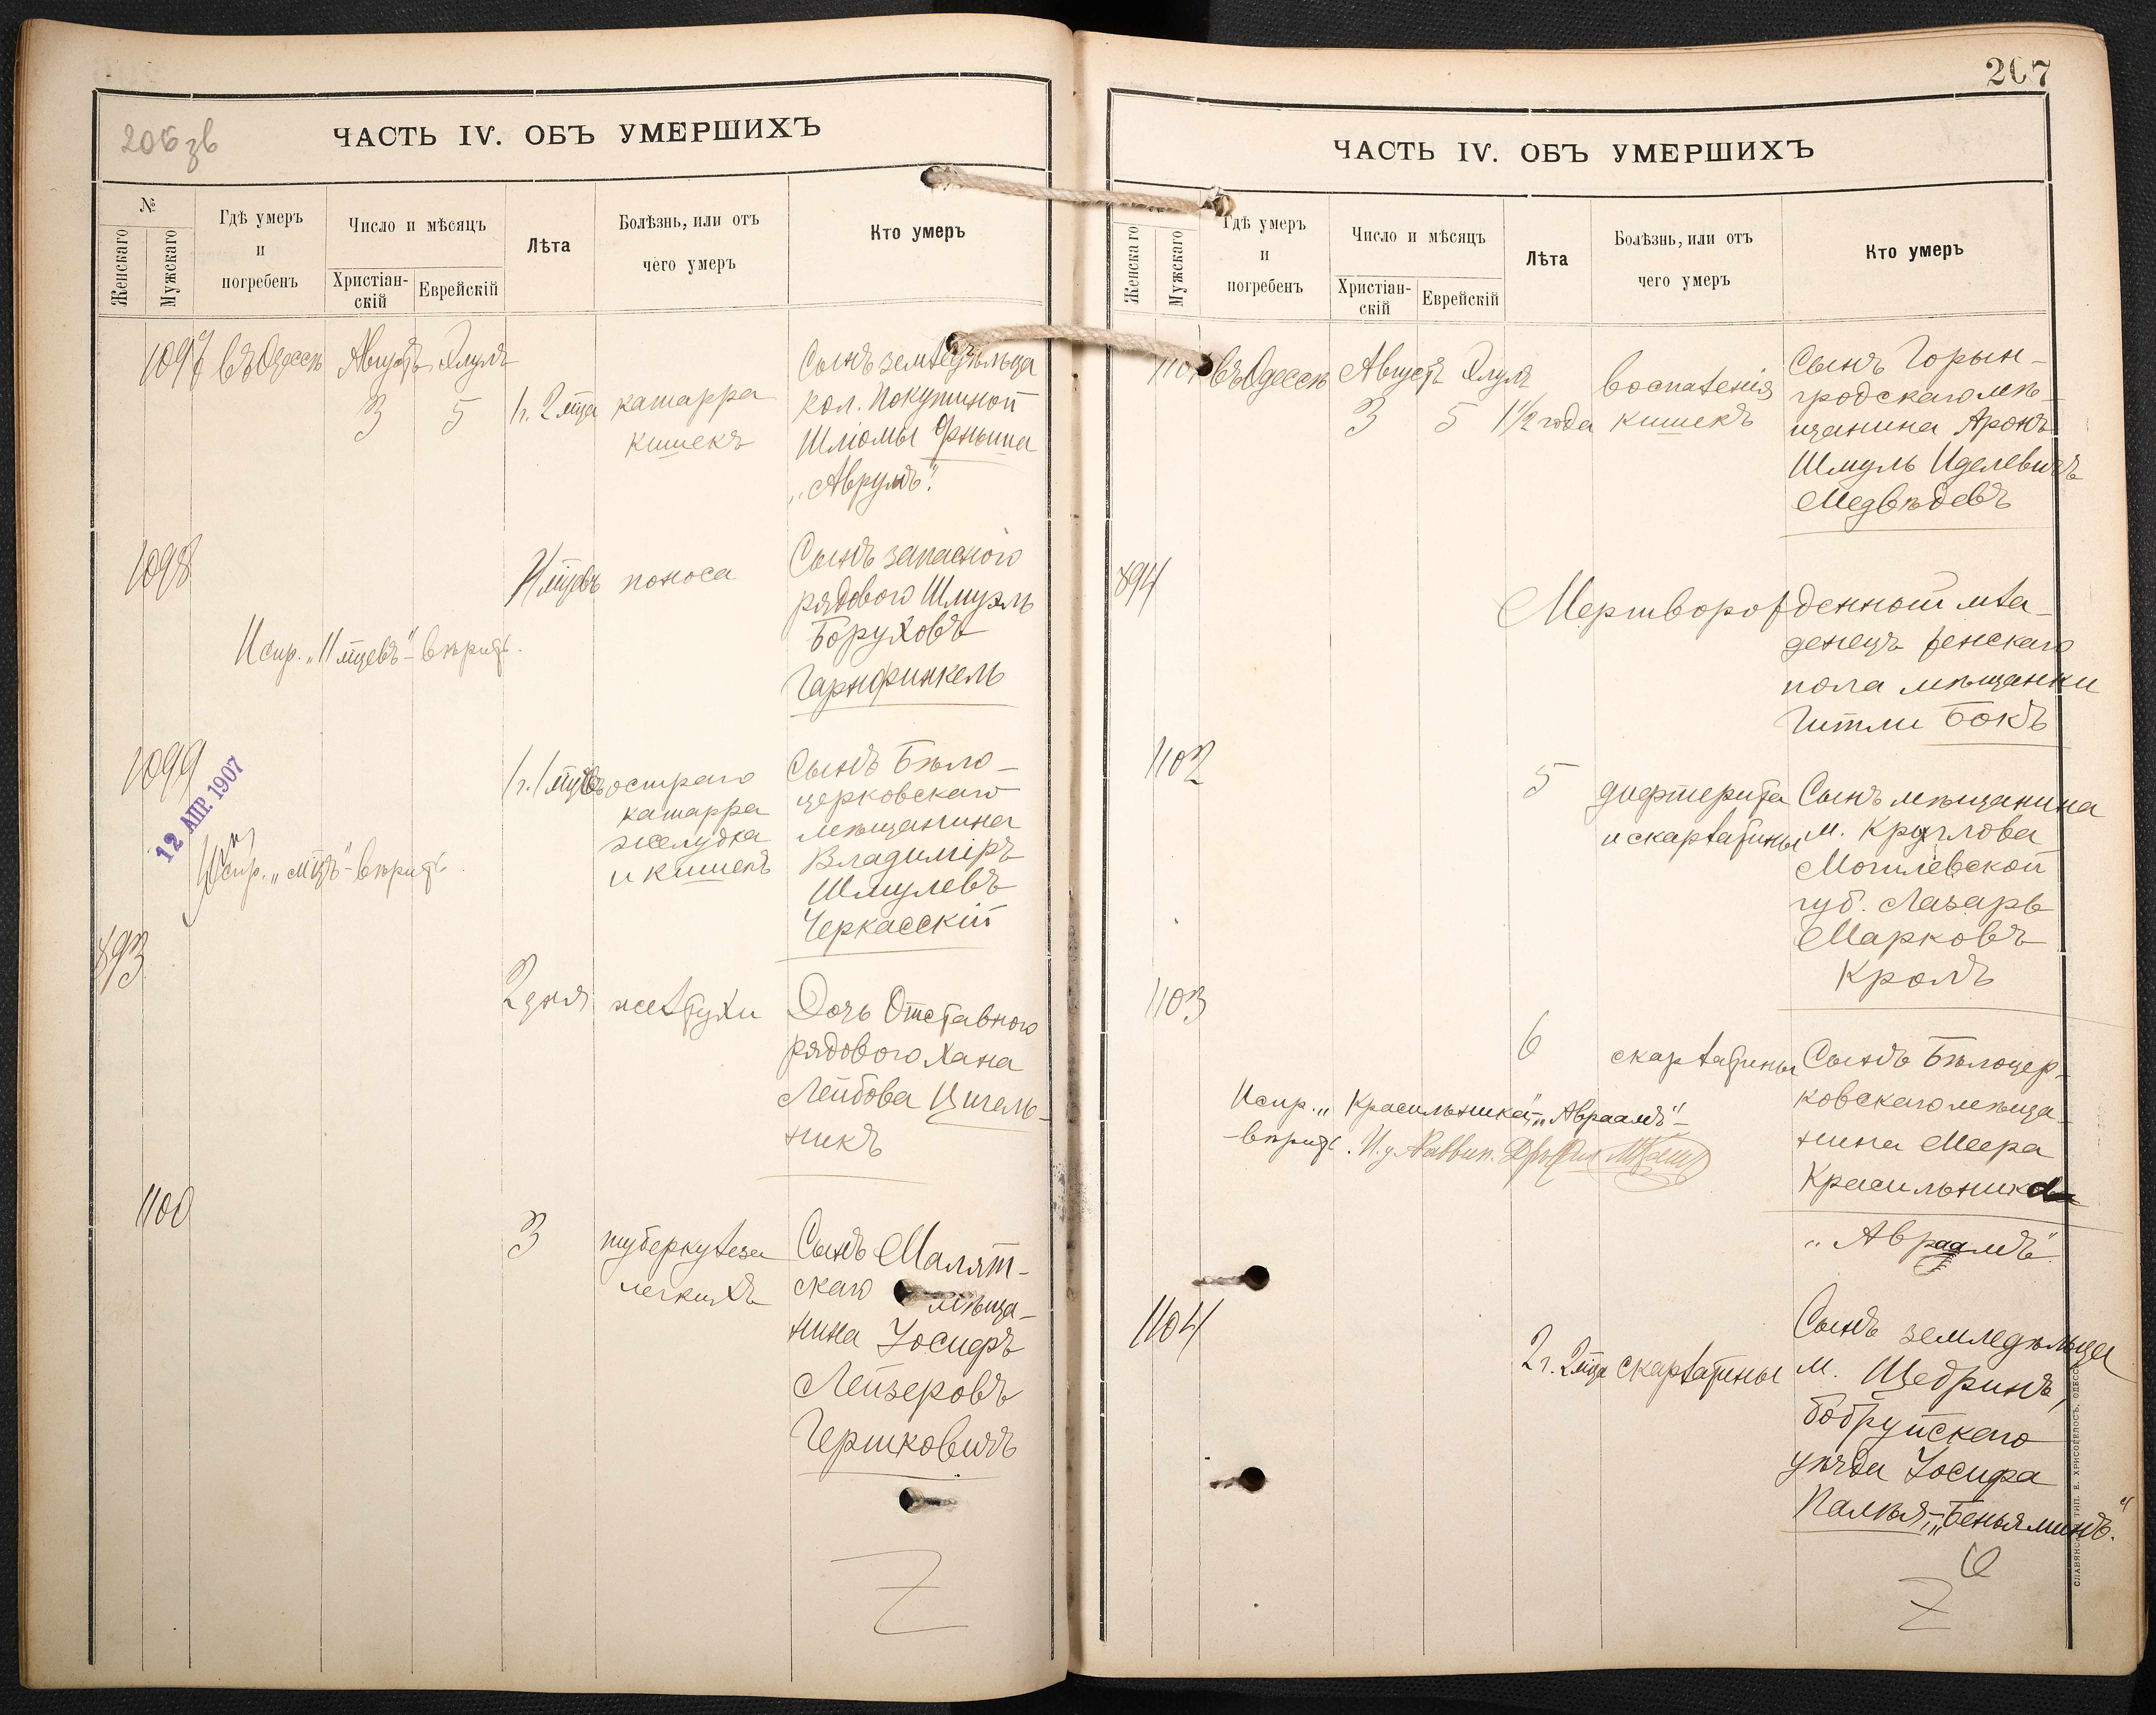 206 зв
ЧАСТЬ IV. ОБЪ УМЕРШИХЪ
№
Женскаго
Мужскаго
Гдѣ умеръ
и
погребенъ
Число и мѣсяцъ
Христіан-
скій
Еврейскій
Лѣта
Болѣзнь, или отъ
чего умеръ
Кто умеръ
1097 въ Одессѣ Августъ Элулъ
3 5 1 г. 2 м̃ца
катарра
кишекъ
Сынъ земледѣльца
кол.
Шліомы
„Аврумъ".
1098
11 м̃цевъ поноса
Сынъ запаснаго
рядового Шмуэль
Боруховъ
Гарнфинкель
Испр. „11 м̃цевъ" - вѣрить.
1099
12 АПР. 1907
остраго
катарра
желудка
и кишекъ
Сынъ Бѣло-
церковскаго
мѣщанина
Владиміръ
Шмулевъ
Черкасскій
Испр. „ " - вѣрить.
893
2 дня желтухи
Дочь Отставного
рядового Хана
Лейбова Цигель-
никъ
1100
3 туберкулеза
легкихъ
Сынъ Малят-
скаго мѣща-
нина Іосифъ
Лейзеровъ
Гершковичъ
207
ЧАСТЬ IV. ОБЪ УМЕРШИХЪ
Женскаго
Мужскаго
Гдѣ умеръ
и
погребенъ
Число и мѣсяцъ
Христіан-
скій
Еврейскій
Лѣта
Болѣзнь, или отъ
чего умеръ
Кто умеръ
1101 въ Одессѣ Августъ Элулъ
3 5 1 1/2 года
воспаленія
кишекъ
Сынъ Горын-
гродскаго мѣ-
щанина Аронъ
Шмуль Иделевичъ
Медвѣдевъ
894
Мертворожденной мла-
денецъ женскаго
пола мѣщанки
Гитли Бокъ
1102
5 дифтерита
и скарлатины
Сынъ мѣщанина
м. Круглова
Могилевской
губ. Лазарь
Марковъ
Кролъ
1103
6 скарлатины
Сынъ Бѣлоцер-
ковскаго мѣща-
нина Меера
Красильника
„Авраамъ"
Испр. „Красильника", „Авраамъ" -
- вѣрить. И. д. Раввин.
1104
2 г. 2 м̃ца скарлатины
Сынъ земледѣльца
м. Щедринъ,
Бобруйскаго
уѣзда Іосифа
Палкъя, - „Беньяминъ".
СЛАВЯНСК. ТИП. Е. ХРИСОГЕЛОСЪ, ОДЕССА